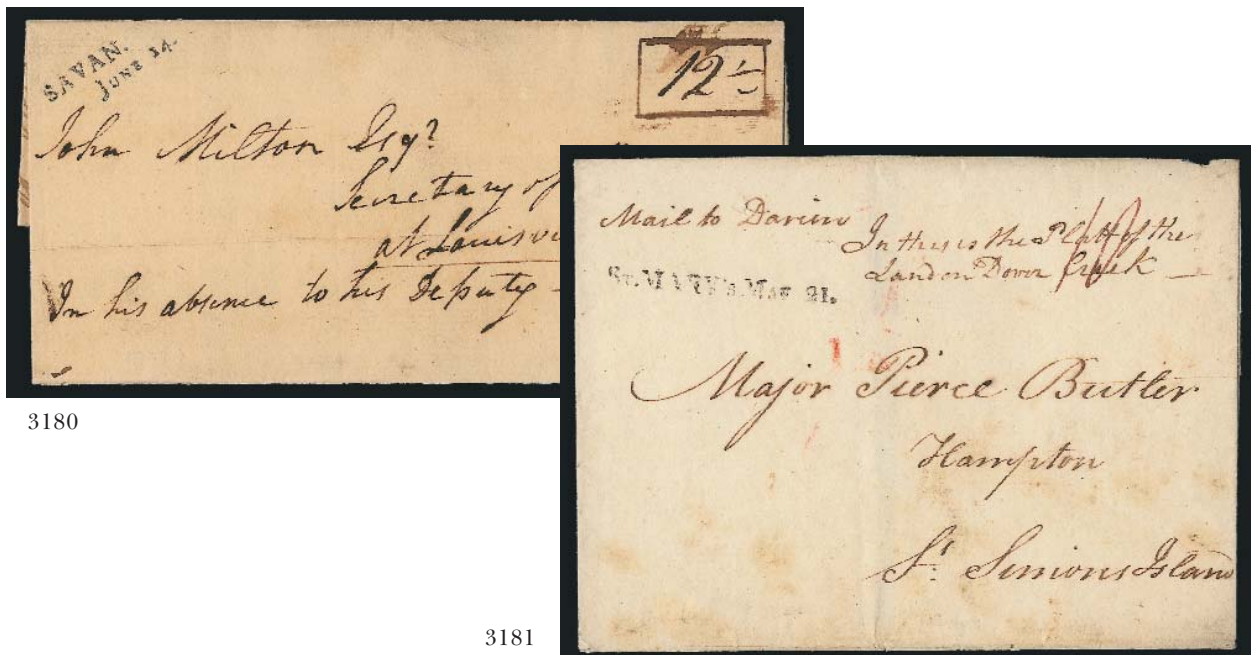 SAVAN.
JUNE 14.
12½
John Milton Esqr
Secretary of
at Louisvi
In his absence to his Deputy
3180
Mail to Darien
In this is the Platt of the
Land on Dover Creek
ST. MARY'S MAY 21.
Major Pierce Butler
Hampton
St Simons Island
3181